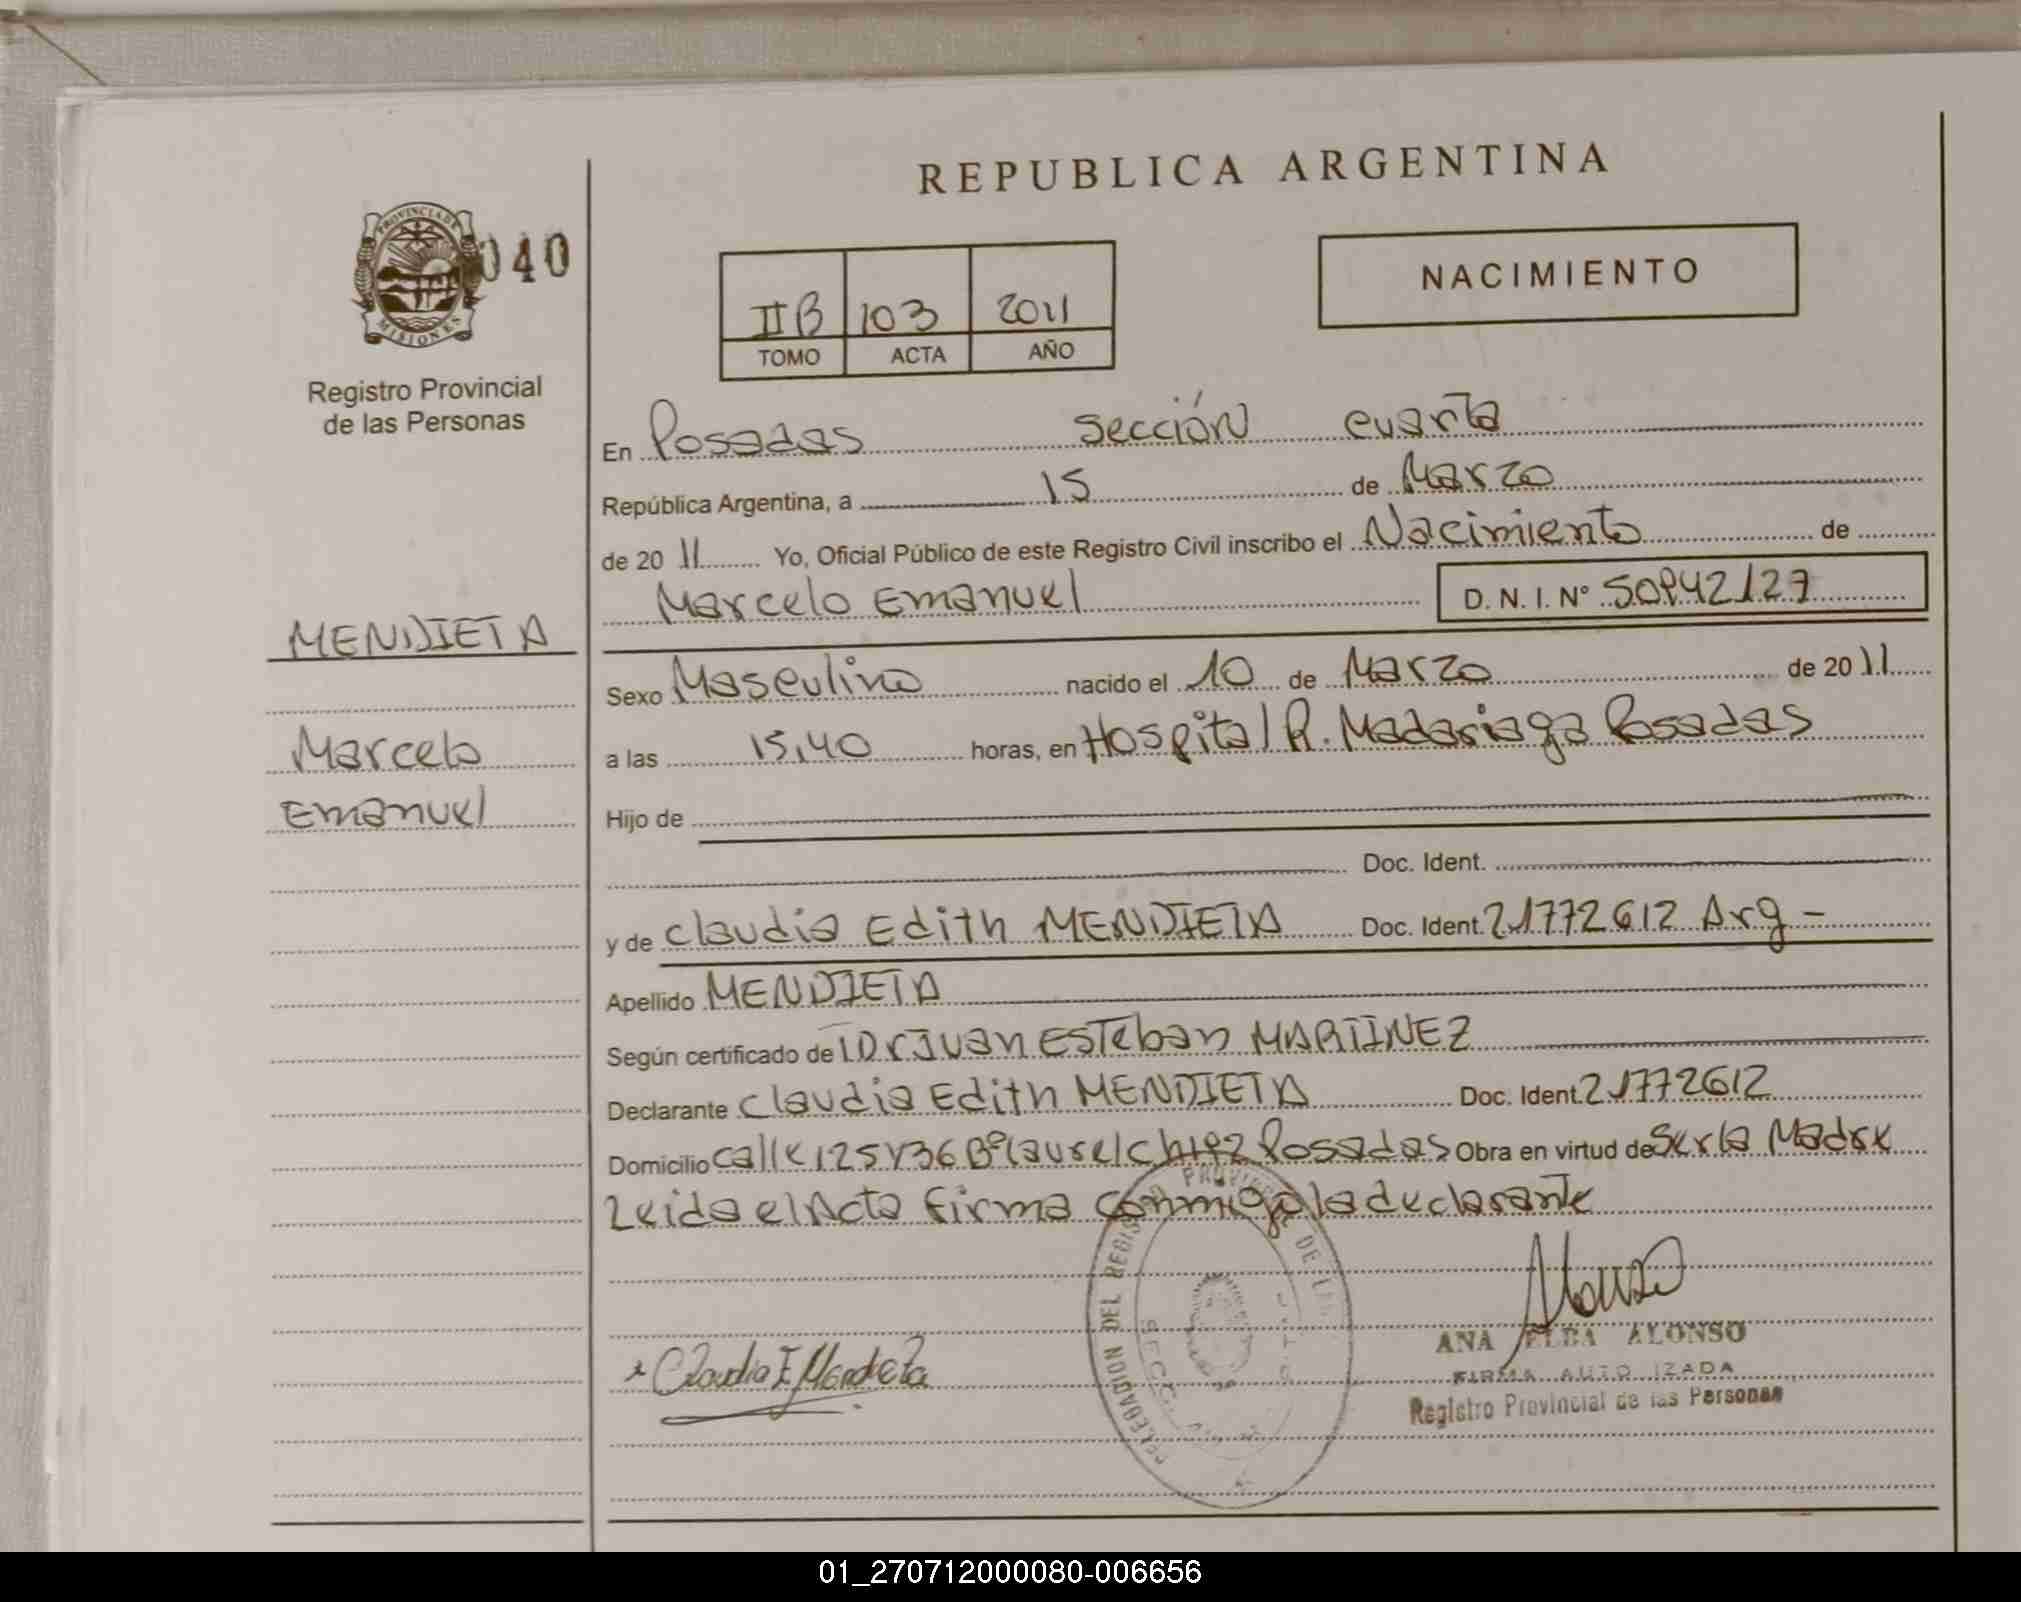 REPUBLICA ARGENTINA
PROVINCIA DE MISIONES
040
Registro Provincial
de las Personas
II B 103 2011
TOMO ACTA AÑO
NACIMIENTO
En Posadas sección cuarta
República Argentina, a 15 de Marzo
de 2011 Yo, Oficial Público de este Registro Civil inscribo el Nacimiento de
Marcelo Emanuel D. N. I. Nº
MENDIETA
Marcelo
Emanuel
Sexo Masculino nacido el 10 de Marzo de 2011
a las 15,40 horas, en Hospital R. Madariaga Posadas
Hijo de
Doc. Ident.
y de Claudia Edith MENDIETA Doc. Ident. 21772612 Arg -
Apellido MENDIETA
Según certificado de Dr Juan Esteban MARTINEZ
Declarante Claudia Edith MENDIETA Doc. Ident. 21772612
Domicilio calle 125 y 36 Bº Laurel Posadas Obra en virtud de Ser la Madre
Leida el Acta firma conmigo la declarante
Claudia E Mendieta
DELEGACION DEL REGISTRO PROVINCIAL DE LAS
ANA ELBA ALONSO
FIRMA AUTORIZADA
Registro Provincial de las Personas
01_270712000080-006656